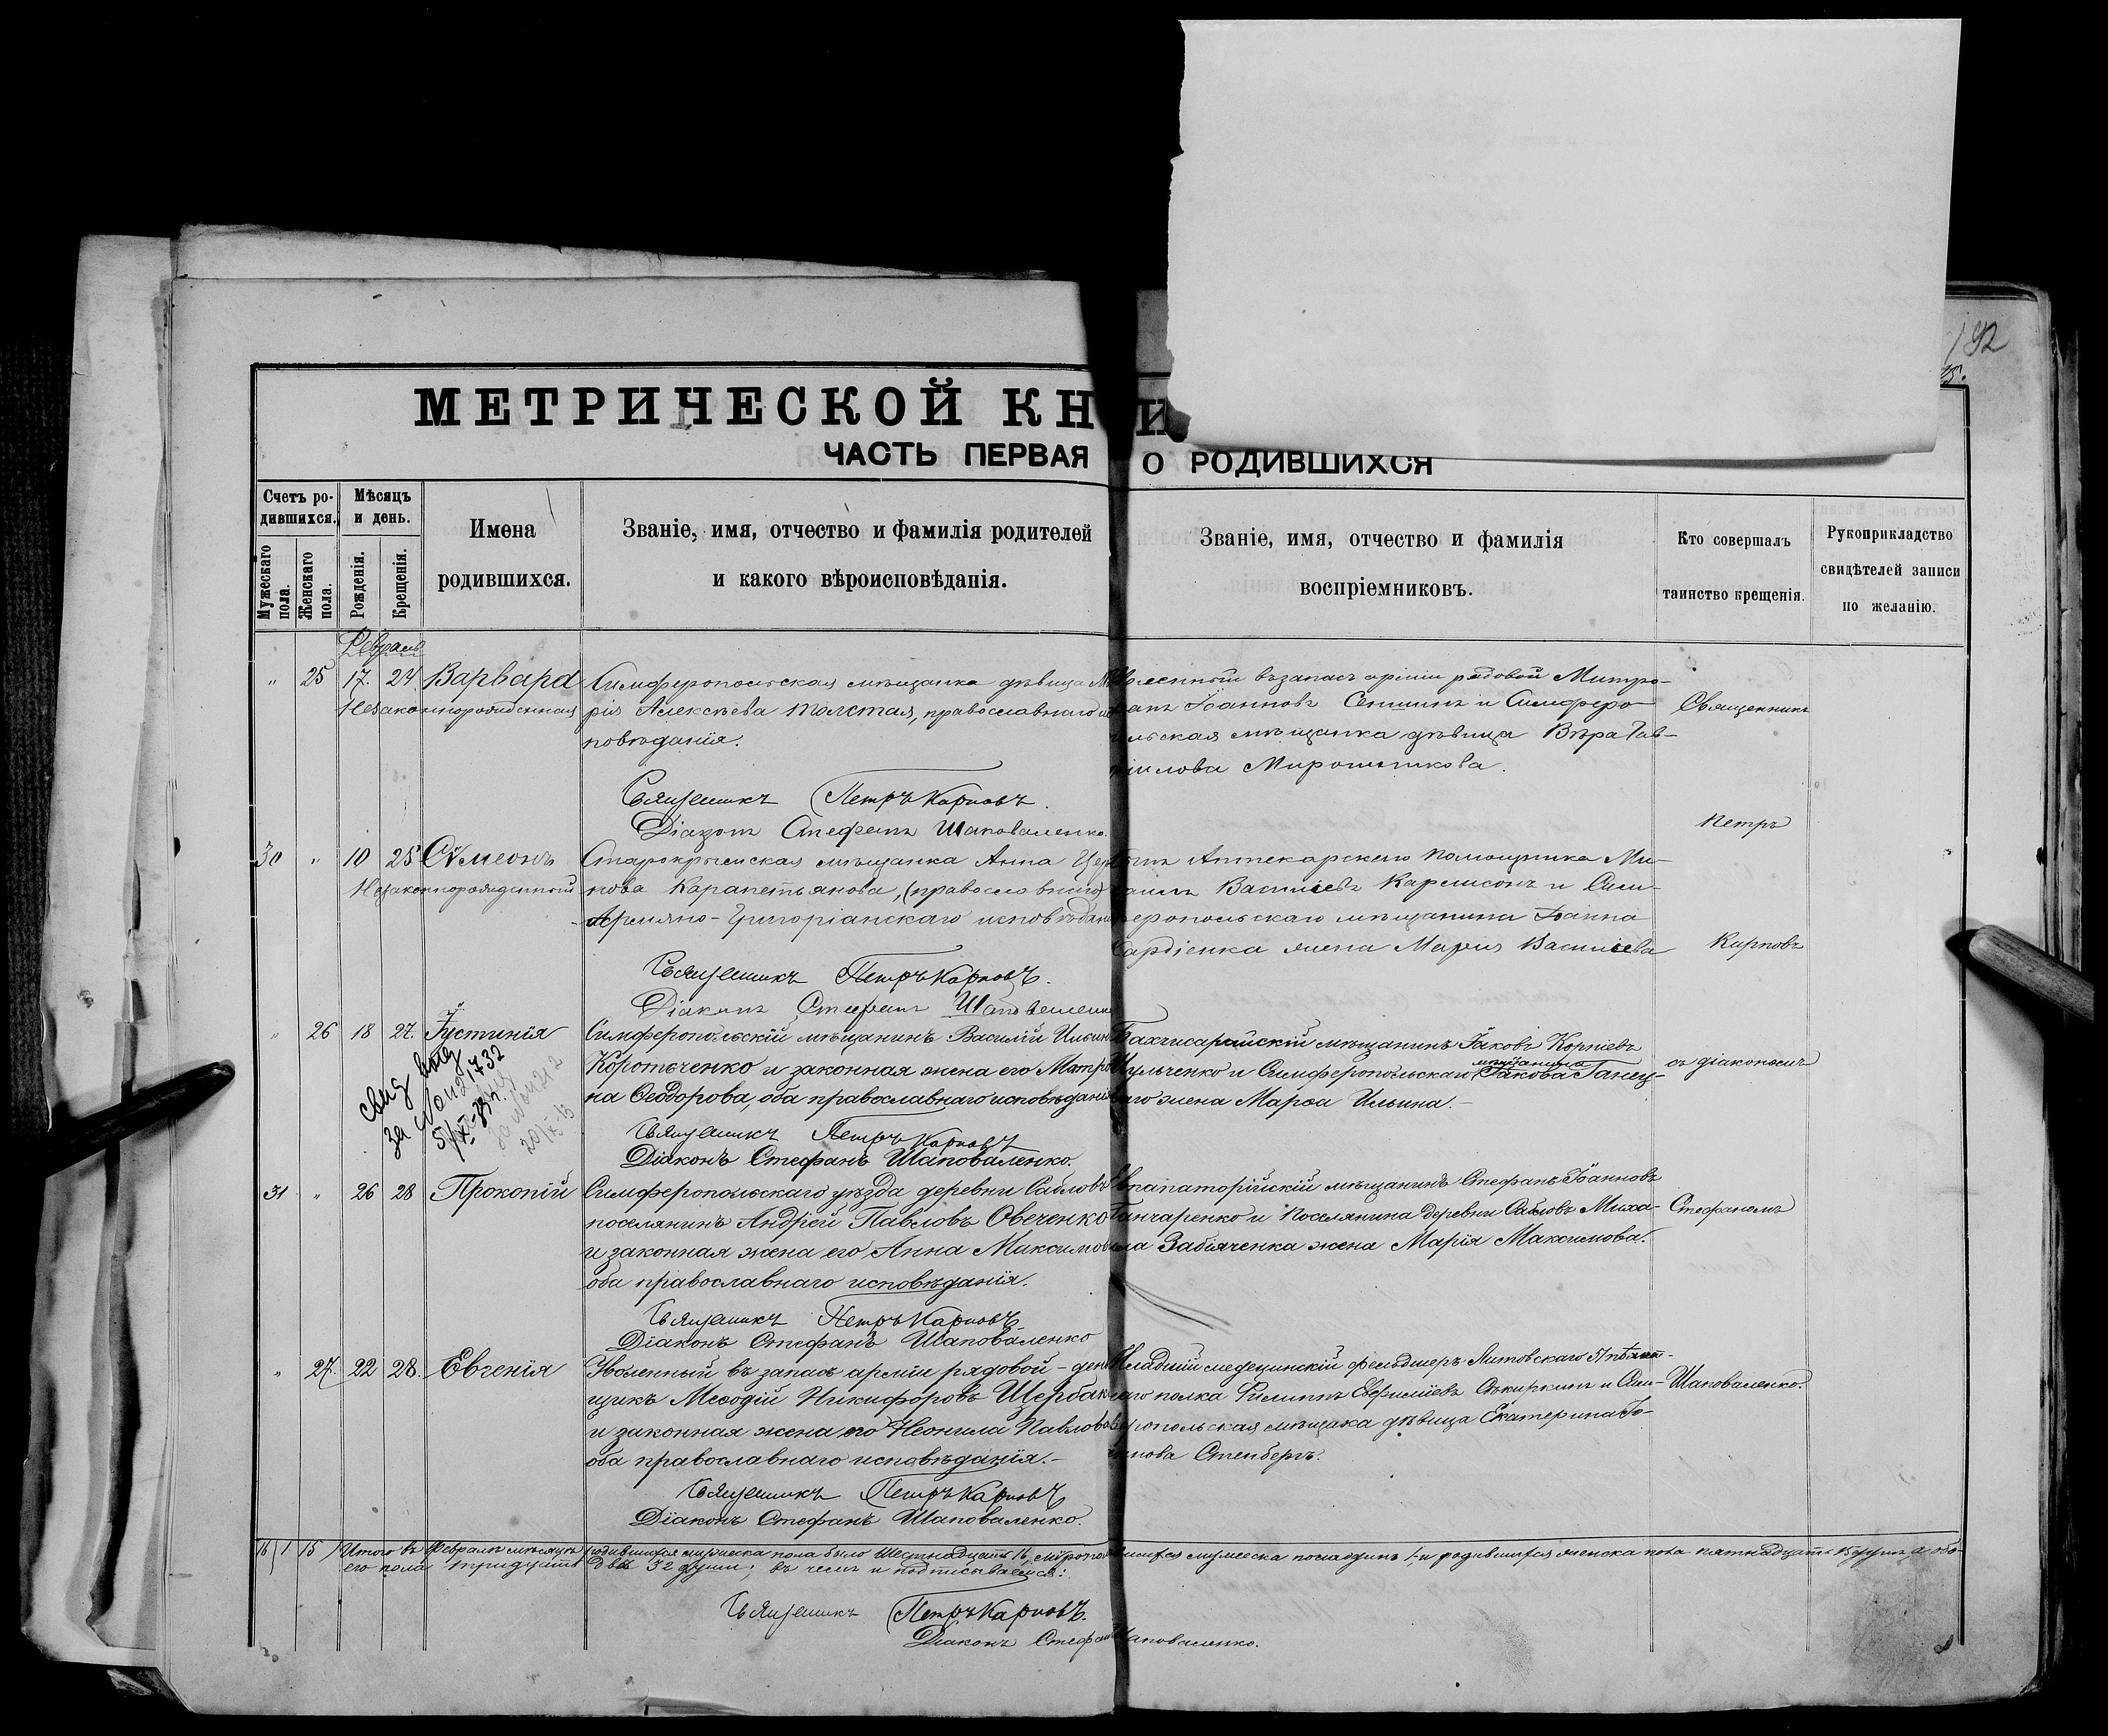 192
МЕТРИЧЕСКОЙ КН И
ЧАСТЬ ПЕРВАЯ О РОДИВШИХСЯ
Счетъ ро-
дившихся.
Мужескаго пола.
Женскаго пола.
Мѣсяцъ
и день.
Рожденія.
Крещенія.
Имена
родившихся.
Званіе, имя, отчество и фамилія родителей
и какого вѣроисповѣданія.
Званіе, имя, отчество и фамилія
воспріемниковъ.
Кто совершалъ
таинство крещенія.
Рукоприкладство
свидѣтелей записи
по желанію.
Февраль
" 25 17. 24 Варвара
Незаконнорожденная
Симферопольская мѣщанка дѣвица Ма
рія Алексѣева Толстая, православнаго ис
повѣданія.
Священникъ Петръ Карповъ.
Діаконъ Стефанъ Шаповаленко.
воленный въ запасъ арміи рядовой Митро-
анъ Іоанновъ Сеншинъ и Симферо-
льская мѣщанка дѣвица Вѣра Гав-
іилова Мирошникова.
Священникъ
Петръ
Карповъ
съ діакономъ
Стефаномъ
Шаповаленко.
30 " 10 25 Сѵмеонъ
Незаконнорожденный
Старокрымская мѣщанка Анна
нова Карапетьянова, (православнаго)
Армяно-Григоріанскаго исповѣдані
Священникъ Петръ Карповъ.
Діаконъ Стефанъ Шаповаленк
Аптекарскаго Помощника Ми-
аилъ Васильевъ Кармисонъ и Сим-
еропольскаго мѣщанина Іоанна
жена Марія Васильева
" 26 18 27. Іустинія
свид выд
за № 1732
Симферопольскій мѣщанинъ Василій Ильинъ
Коротченко и законная жена его Матро
на Ѳеодорова, оба православнаго исповѣданія
Священникъ Петръ Карповъ
Діаконъ Стефанъ Шаповаленко.
Бахчисарайскій мѣщанинъ Іаковъ Корніевъ
Шульченко и Симферопольскаго мѣщанина Іакова Ганец-
аго жена Марѳа Ильина.-
31 " 26 28 Прокопій
Симферопольскаго уѣзда деревни Саблов
поселянинъ Андрей Павловъ Овеченко
и законная жена его Анна Максимов
оба православнаго исповѣданія.
Священникъ Петръ Карповъ
Діаконъ Стефанъ Шаповаленко
Евпаторійскій мѣщанинъ Стефанъ Іоанновъ
Ганчаренко и поселянина деревни Саблов Миха-
ила Забіяченка жена Марія Максимова.
" 27. 22 28. Евгенія
Уволенный въ запасъ арміи рядовой-ден
щикъ Меѳодій Никифоровъ Щербак
и законная жена его Неонила Павлова
оба православнаго исповѣданія.-
Священникъ Петръ Карповъ
Діаконъ Стефанъ Шаповаленко.
Младшій медецинскій фельдшеръ Литовскаго Пѣхот-
наго полка Филиппъ Секиркинъ и Сим-
еропольская мѣщанка дѣвица Екатерина Іо-
аннова Стенбергъ.
16/1 15/ Итого въ Февралѣ мѣсяцѣ родившихся мужеска пола было Шестнадцать 16, мужеска пола одинъ 1, и родившихся женска пола пятнадцать 15, а обо-
его пола Тридцать Двѣ 32 души; въ чемъ и подписываемся:
Священникъ Петръ Карповъ.
Діаконъ Стефанъ Шаповаленко.